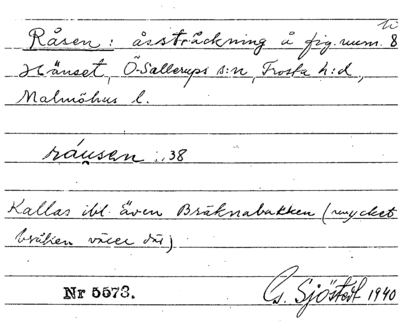 Råsen: åssträckning å fig. num. 8
Hänset, Ö-Sallerups s:n, Frosta h:d,
Malmöhus l.
ráu̯sen :38
Kallas ibl. även Bräknabakken (mycket
bräken växer där)
Nr 5573.
G. Sjöstedt 1940